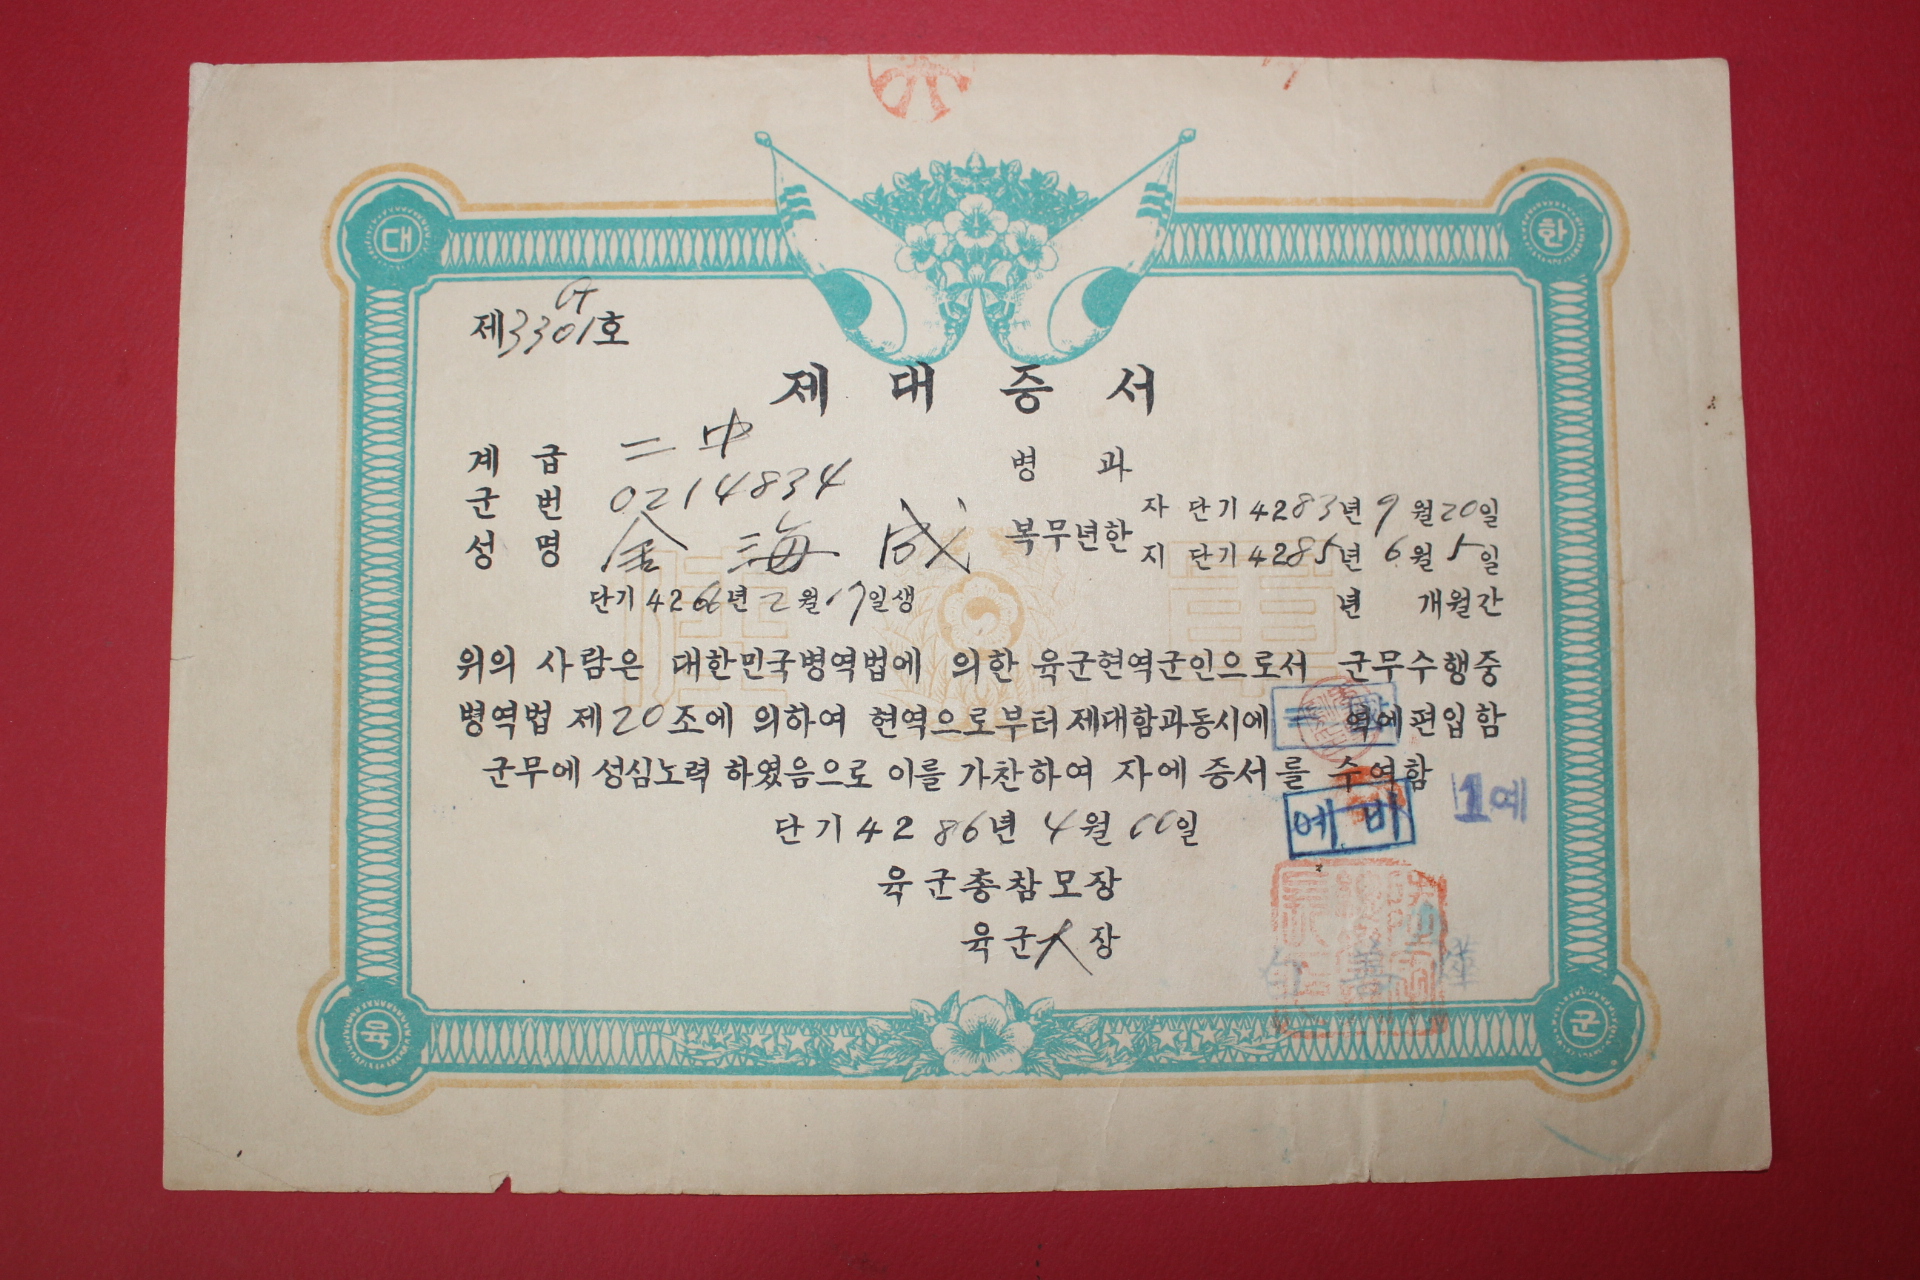 대 한
제3301호
제 대 증 서
계 급 二中
군 번 0214834
성 명 金海成
단기4266년2월17일생
병 과
복무년한
자 단기4283년9월20일
지 단기4285년6월5일
년 개월간
위의 사람은 대한민국병역법에 의한 육군현역군인으로서 군무수행중
병역법 제20조에 의하여 현역으로부터제대함과동시에 역에편입함
군무에 성심노력 하였음으로 이를 가찬하여 자에 증서를 수여함
예비 1예
단기4286년4월 일
육군총참모장
육군 장
육 군